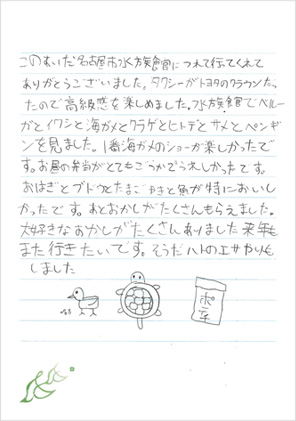 このあいだ名古屋市水族館につれて行ってくれて
ありがとうございました。タクシーがトヨタのクラウンだっ
たので高級感を楽しめました。水族館でベルー
ガとイワシと海ガメとクラゲとヒトデとサメとペンギ
ンを見ました。1番海ガメのショーが楽しかったで
す。お昼の弁当がとてもごうかでうれしかったです。
おはぎとブドウとたまごやきと魚が特においし
かったです。あとおかしがたくさんもらえました。
大好きなおかしがたくさんありました来年も
また行きたいです。そうだハトのエサやりも
しました
ポテ